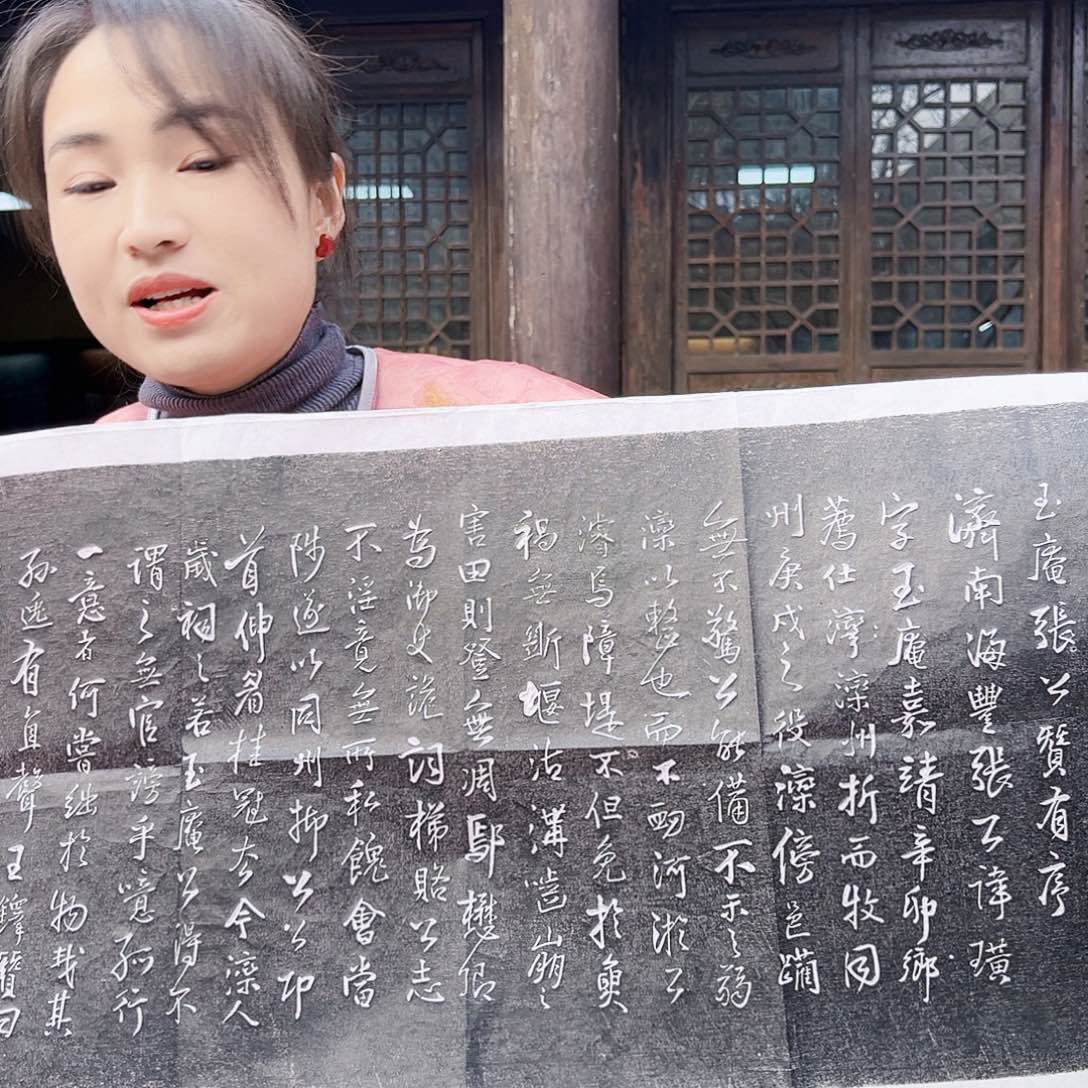 玉庵張公贊有序
濟南海豐張公諱璜
字玉庵嘉靖辛卯鄉
薦仕濘灤州折而牧同
州庚戌之役灤傍邑躪
無不驚公能備不示之弱
灤以整也而不動河漲公
濬焉障堤不但免於魚
禍無斷堰沽溝嚙崩之
害田則登無凋鄢
為御史詭詞梯賂公志
不淫竟無所私餽會當
陟遂以同州抑公公印
首伸眉挂冠去今灤人
歲祠之若玉庵公得不
謂之無官謗乎噫孤行
一意者何嘗絀於物哉其
孫遜有直聲王鐸贊曰